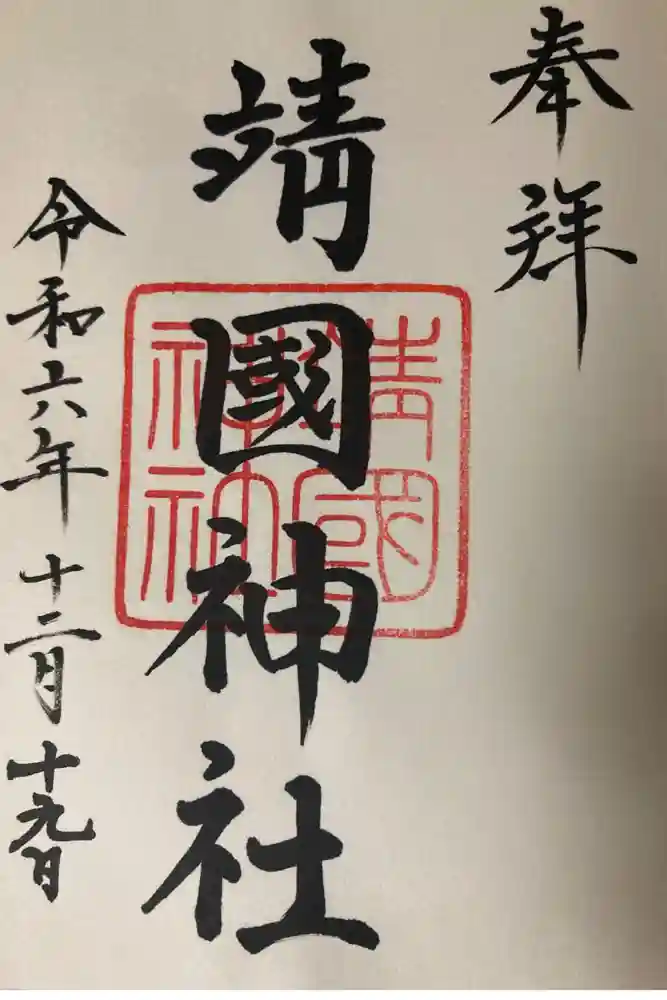 奉拝
靖國神社
靖國神社
令和六年十二月十九日